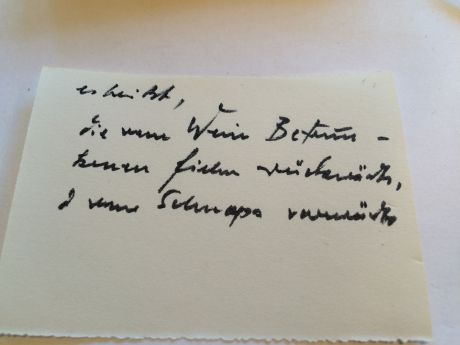 es heißt,
die vom Wein Betrun-
kenen fielen rückwärts,
d vom Schnaps vorwärts